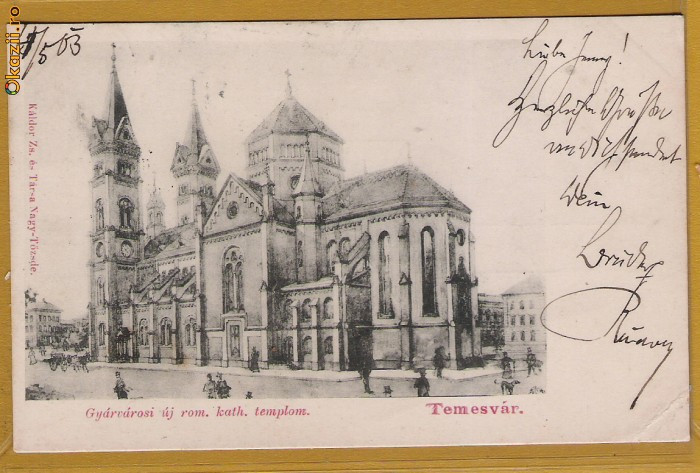 okazii.ro
/5 03
Káldor Zs. és Társa Nagy-Tőzsde.
Liebe Jenny!
Herzliche Grüße
sendet
Dein
Bruder
Gyárvárosi új rom. kath. templom.
Temesvár.